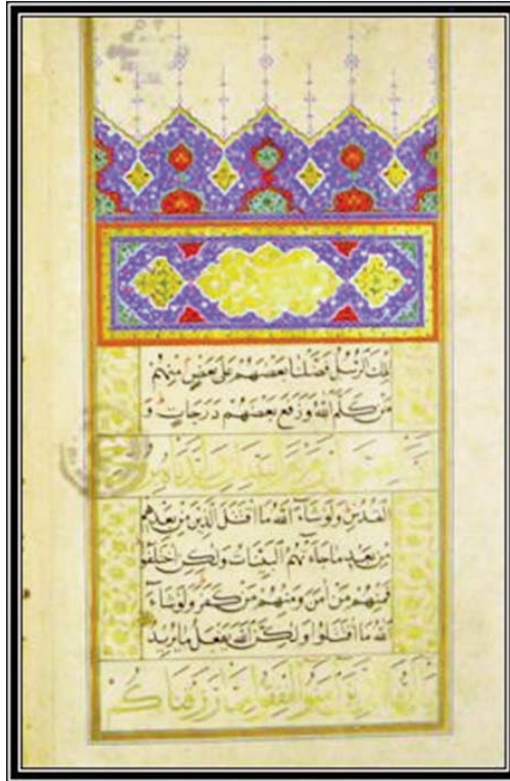 تلك الرسل فضلنا بعضهم على بعض منهم
من كلم الله ورفع بعضهم درجات و
القدس ولو شاء الله ما اقتتل الذين من بعدهم
من بعد ما جاءتهم البينات ولكن اختلفوا
فمنهم من آمن ومنهم من كفر ولو شاء
الله ما اقتتلوا ولكن الله يفعل ما يريد
يا أيها الذين آمنوا أنفقوا مما رزقناكم